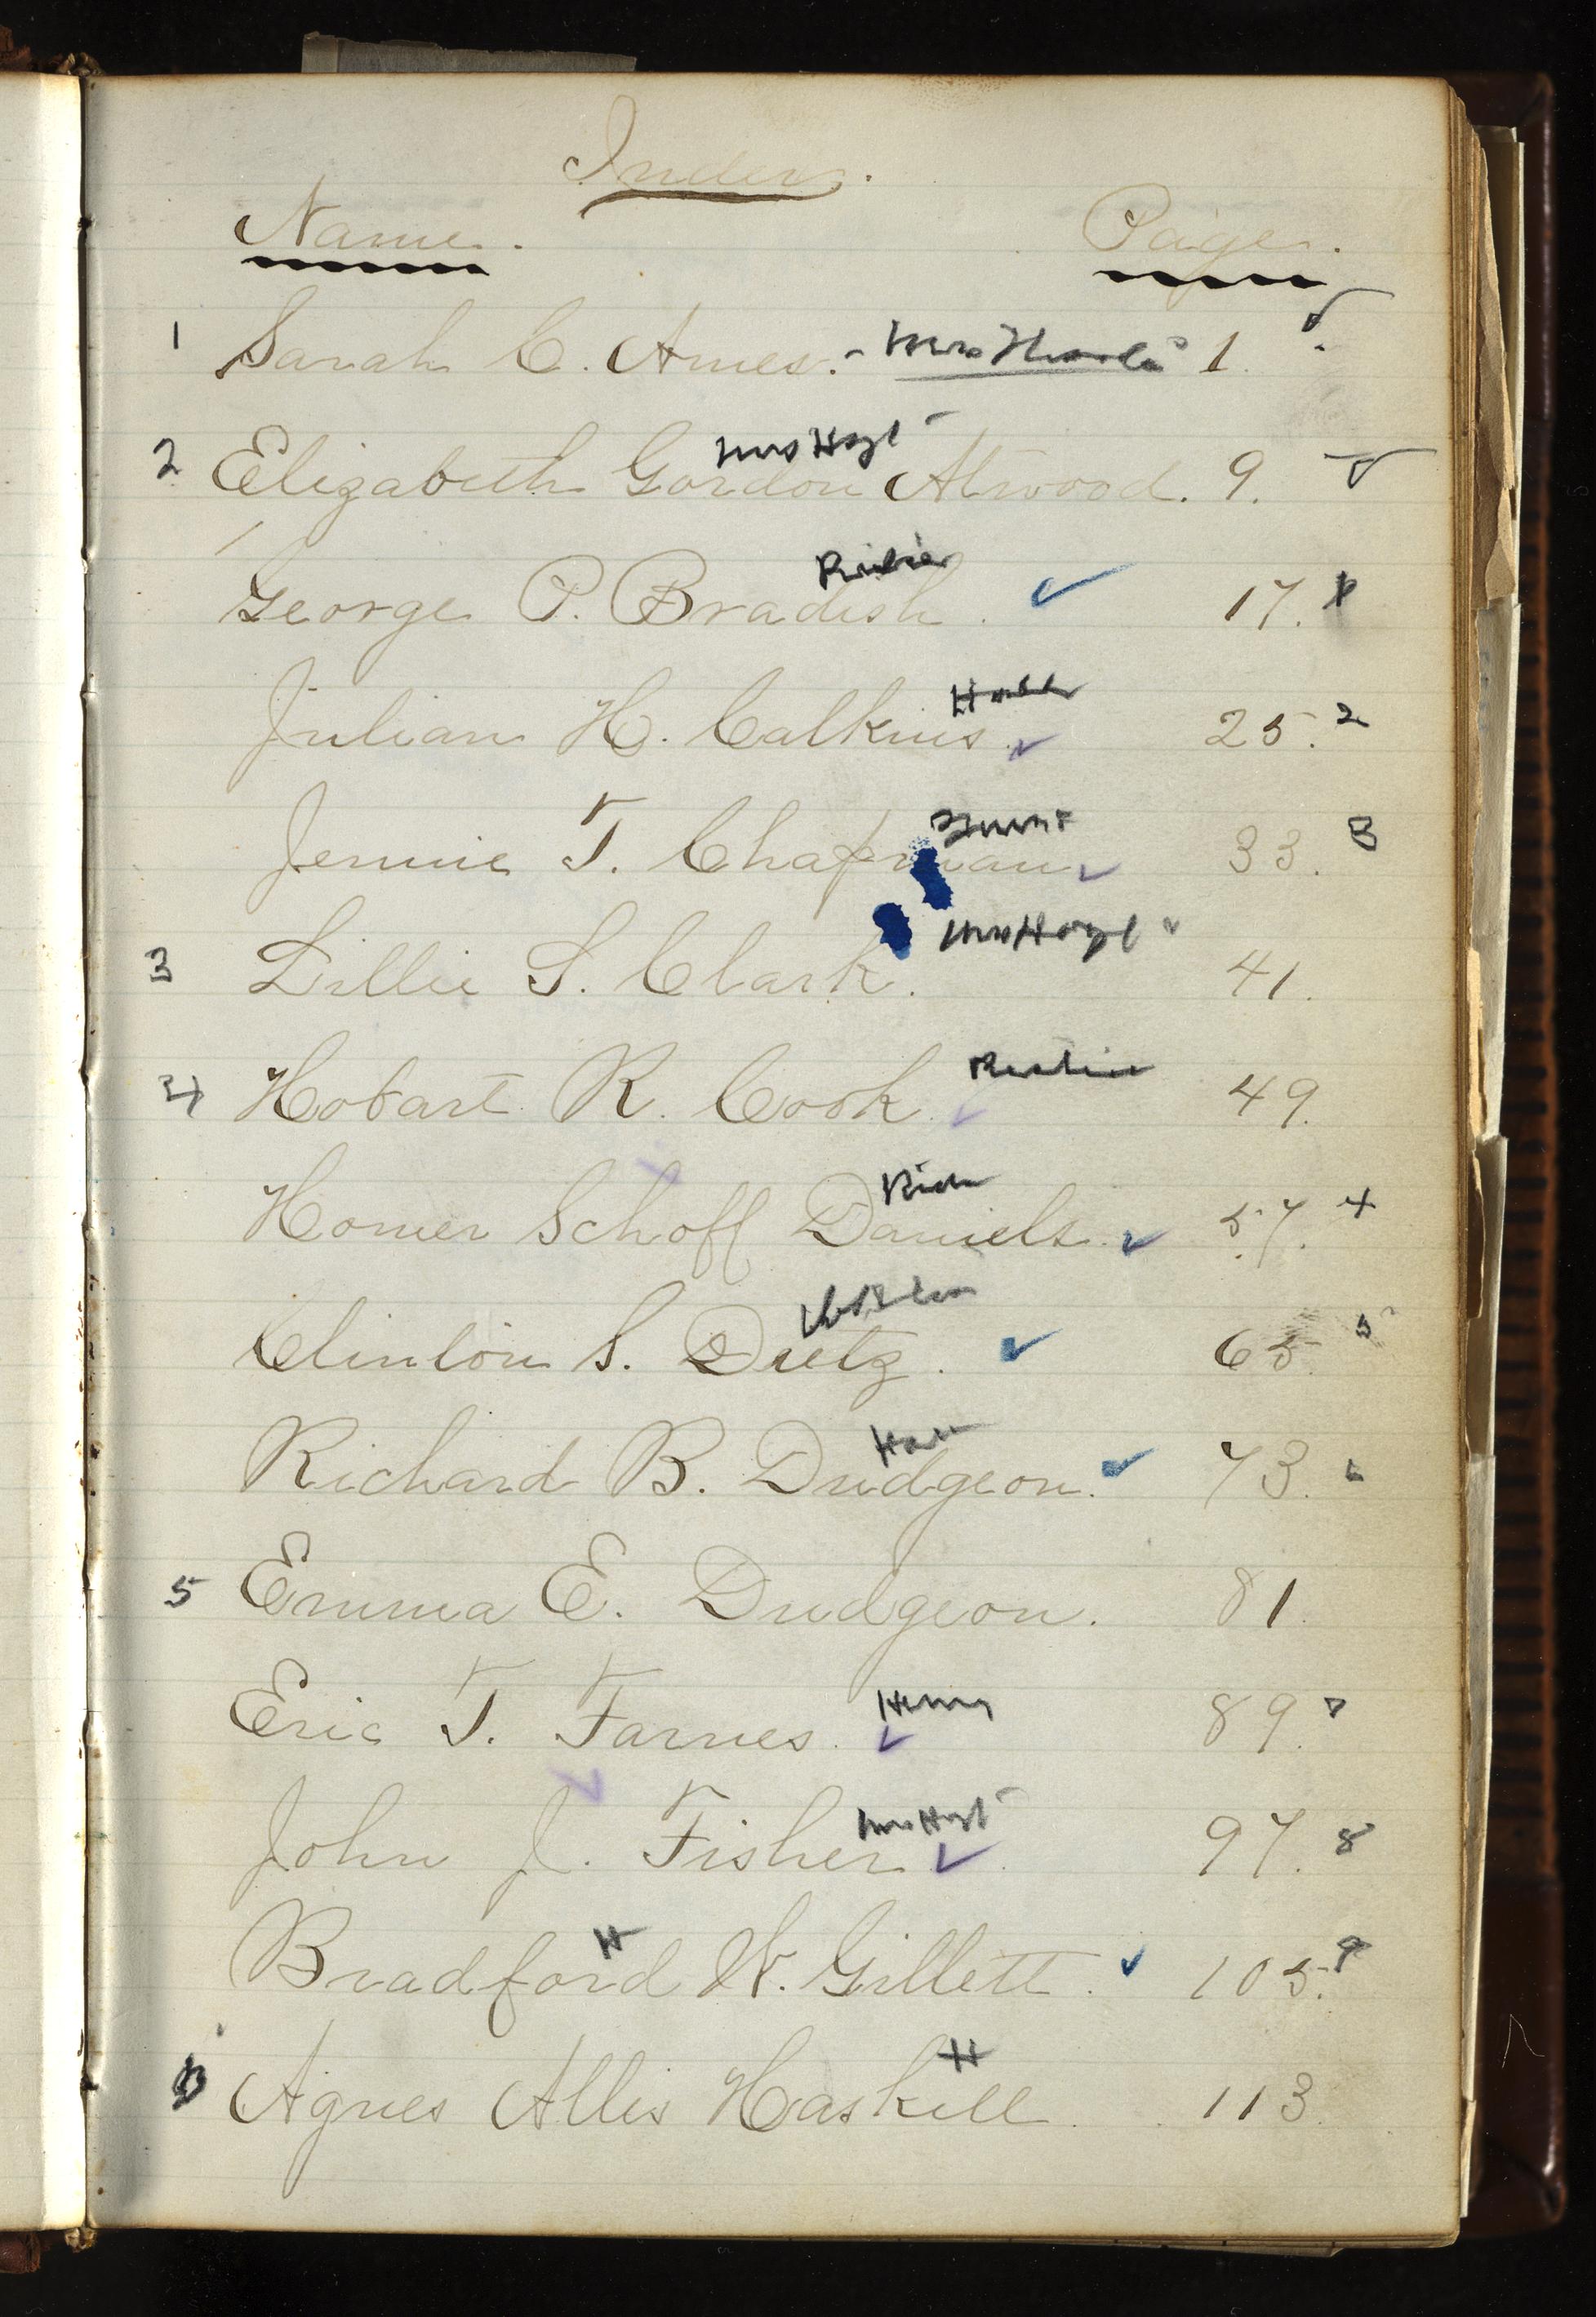 Index.
Name. Page.
1 Sarah C. Ames. - Mrs 1.
Mrs Hoyt
2 Elizabeth Gordon Atwood. 9.
George P. Bradish. ✓ 17. 1
Julian H. Calkins. ✓ 25. 2
Jennie T. Chapman ✓ 33. 3
Mrs Hoyt
3 Lillie S. Clark. 41.
4 Hobart R. Cook. ✓ 49.
Rich
Homer Schoff Daniels. ✓ 57. 4
Clinton S. Dietz. ✓ 65. 5
Richard B. Dudgeon. ✓ 73. 6
5 Emma E. Dudgeon. 81.
Henry
Eric T. Farnes. ✓ 89. 7
Mrs Hoyt
John J. Fisher ✓ 97. 8
H
Bradford W. Gillett. ✓ 105. 9
H
6 Agnes Allis Haskell. 113.